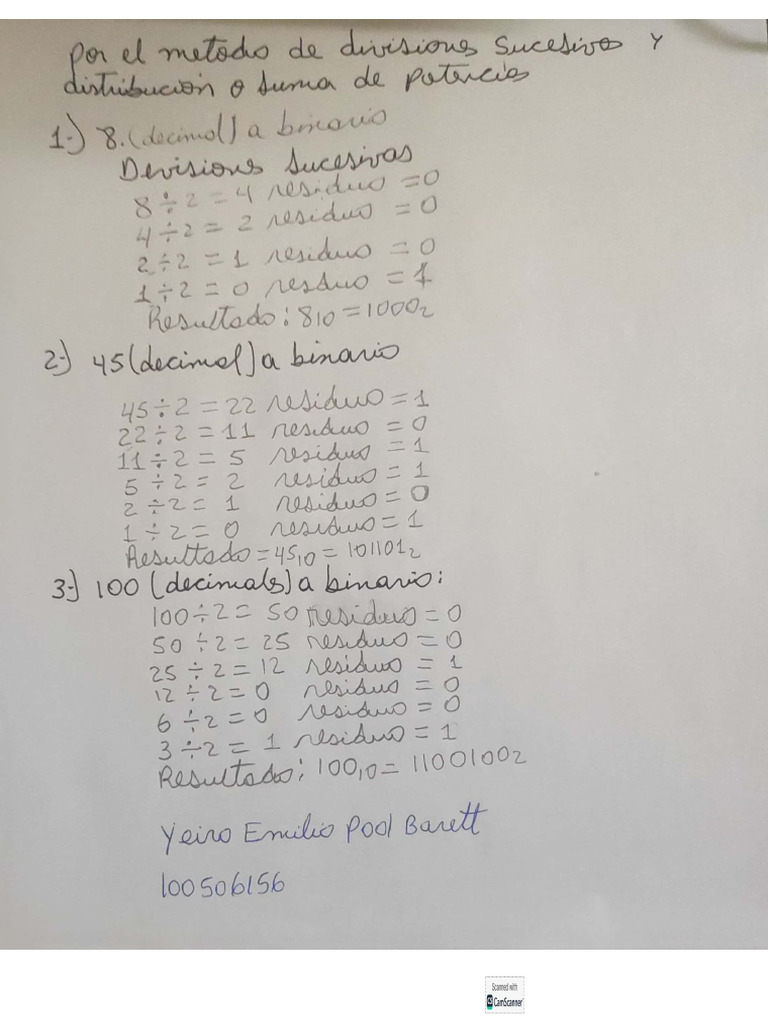 por el metodo de divisiones sucesivas y
distribución o suma de potencias
1-) 8.(decimal) a binario
Devisions sucesivas
8 ÷ 2 = 4 residuo = 0
4 ÷ 2 = 2 residuo = 0
2 ÷ 2 = 1 residuo = 0
1 ÷ 2 = 0 residuo = 1
Resultado: 8₁₀ = 1000₂
2-) 45 (decimal) a binario
45 ÷ 2 = 22 residuo = 1
22 ÷ 2 = 11 residuo = 0
11 ÷ 2 = 5 residuo = 1
5 ÷ 2 = 2 residuo = 1
2 ÷ 2 = 1 residuo = 0
1 ÷ 2 = 0 residuo = 1
Resultado = 45₁₀ = 101101₂
3-) 100 (decimals) a binario:
100 ÷ 2 = 50 residuo = 0
50 ÷ 2 = 25 residuo = 0
25 ÷ 2 = 12 residuo = 1
12 ÷ 2 = 0 residuo = 0
6 ÷ 2 = 0 residuo = 0
3 ÷ 2 = 1 residuo = 1
Resultado: 100,₁₀ = 1100100₂
Yeiro Emilio Pool Barett
100506156
Scanned with
CS CamScanner